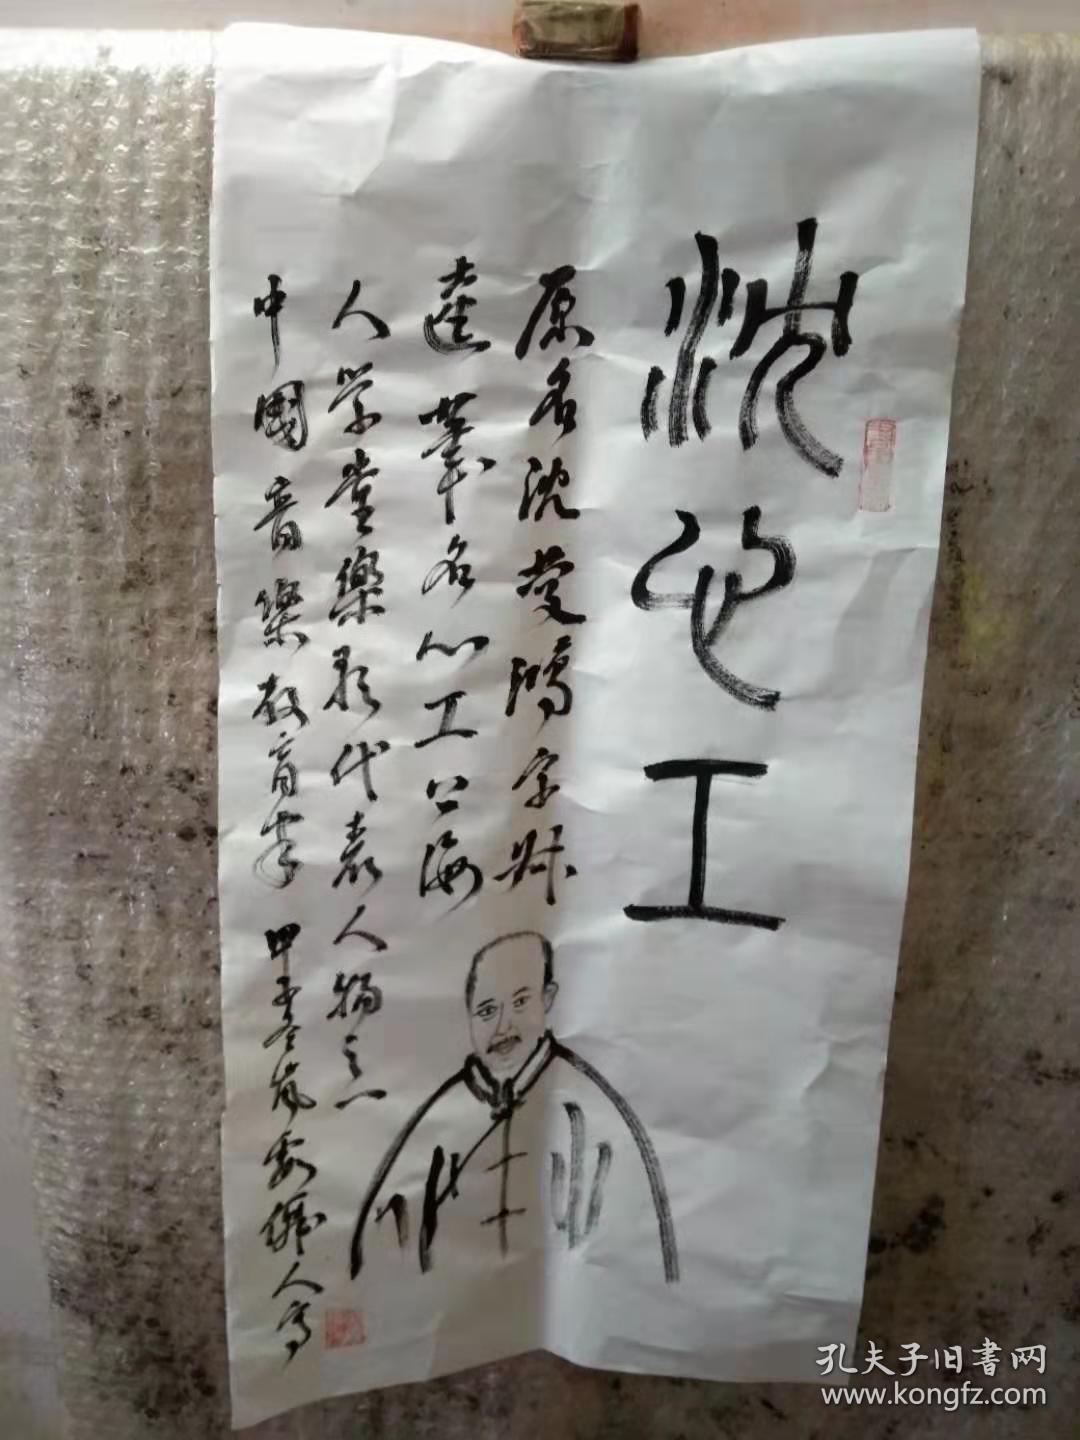 沈心工
原名沈慶鴻字叔
逵筆名心工上海
人学堂樂歌代表人物之一
中國音樂教育家
人写
孔夫子旧書网
www.kongfz.com